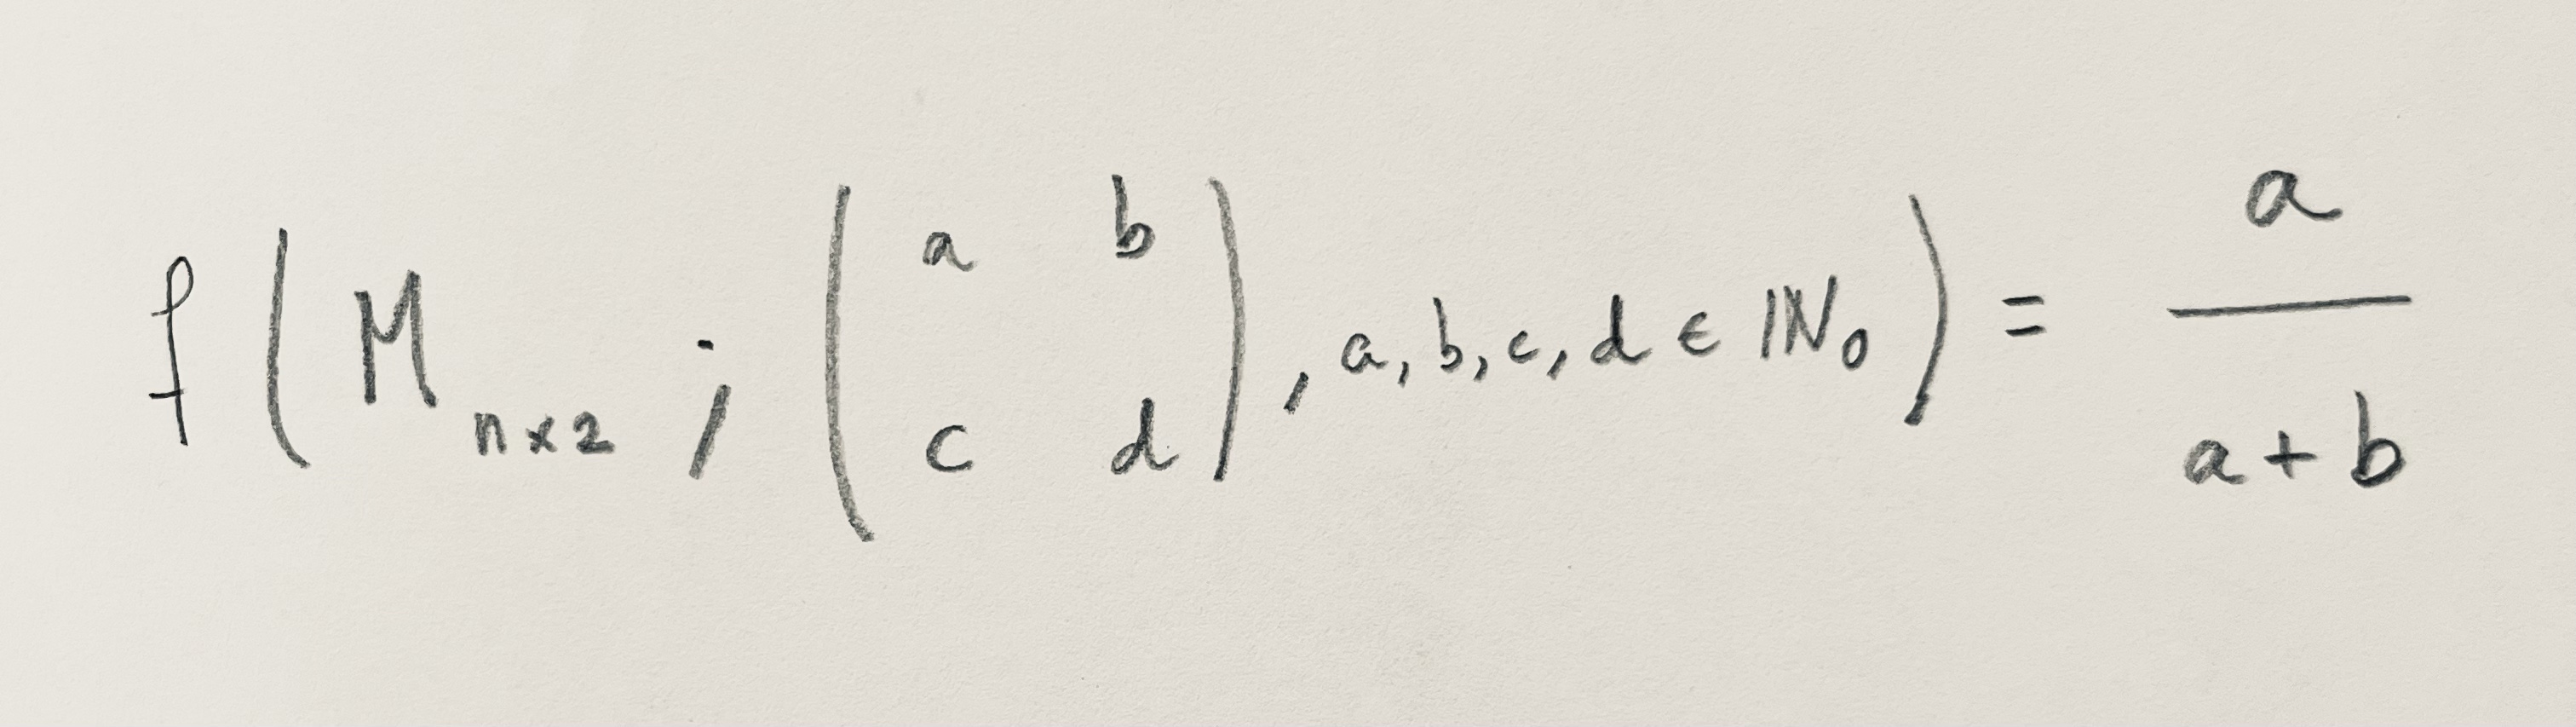 f ( M_{n×2} ; ( a b ; c d ) , a, b, c, d ∈ ℕ_0 ) = a / (a + b)